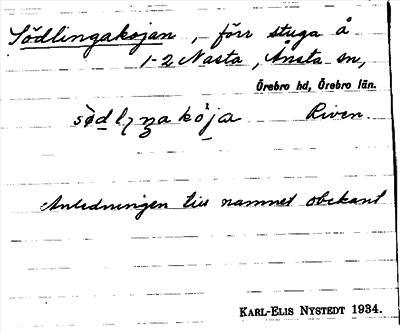 Södlingakojan, förr stuga å
1-2 Nasta, Ånsta sn,
Örebro hd, Örebro län.
Riven.
Anledningen till namnet obekant
KARL-ELIS NYSTEDT 1934.